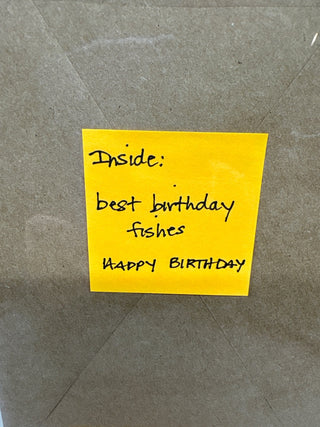 Inside:
best birthday
fishes
HAPPY BIRTHDAY